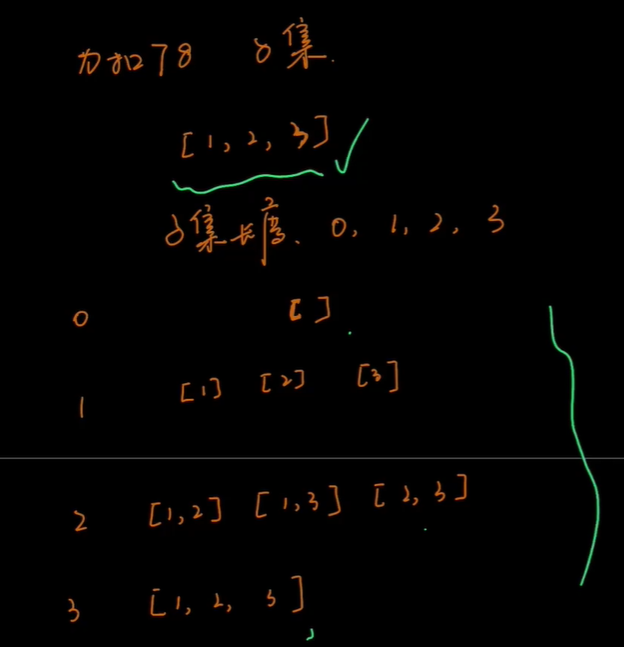 力扣78 子集.
[1, 2, 3]
子集长度、0, 1, 2, 3
0 []
1 [1] [2] [3]
2 [1,2] [1,3] [2,3]
3 [1, 2, 3]